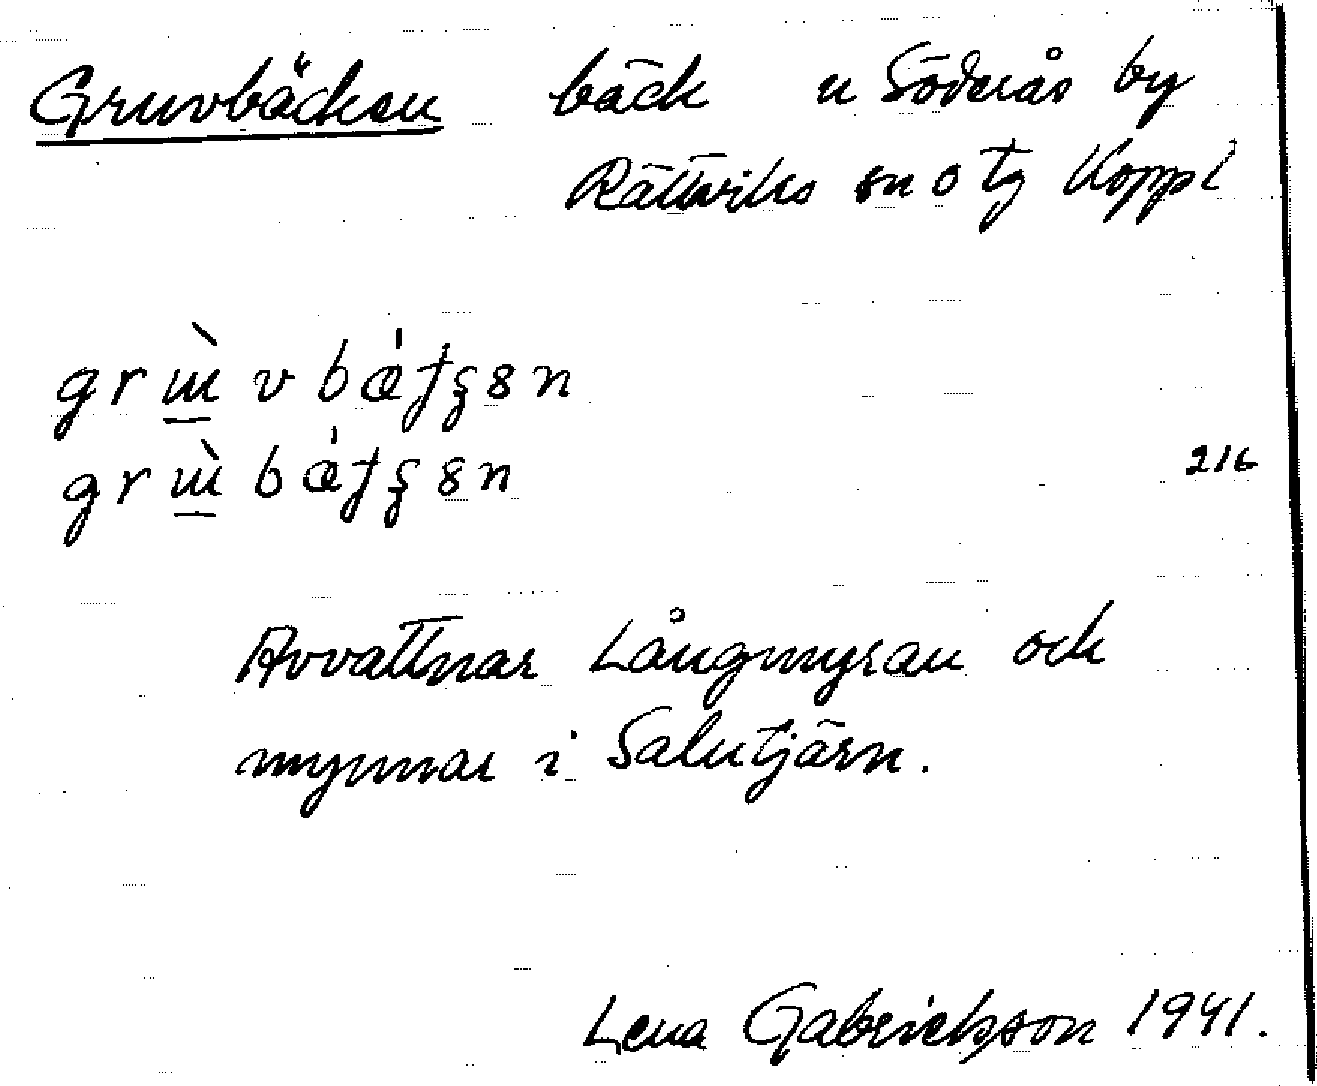 Gruvbäcken bäck u Söderås by
Rättviks sn o tg Koppl
216
Avvattnar Långmyran och
mynnar i Salutjärn.
Lena Gabrielsson 1941.